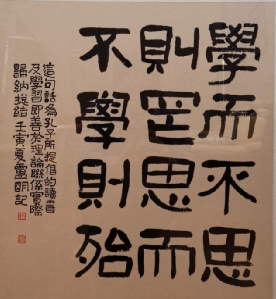 學而不思
則罔思而
不學則殆
這句話為孔子所提倡的讀書
及學習即善於理論聯係實際
歸納總結 壬寅夏 記